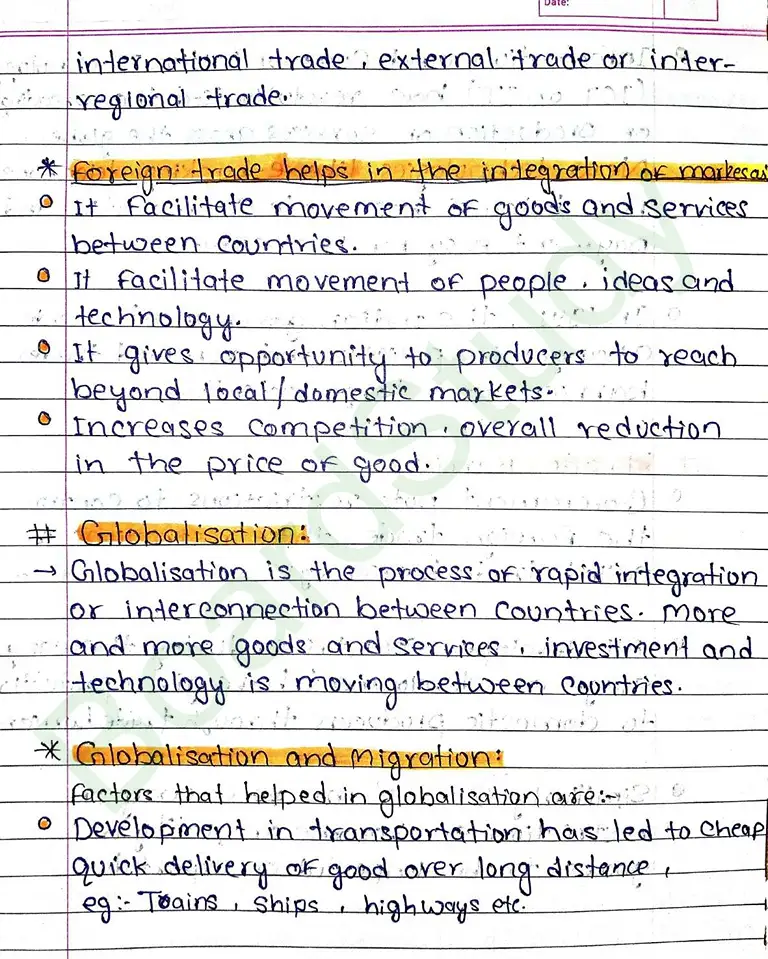 Date:
international trade, external trade or inter-
regional trade.
* Foreign trade helps in the integration of markesas
• It facilitate movement of goods and services
between countries.
• It facilitate movement of people, ideas and
technology.
• It gives opportunity to producers to reach
beyond local/domestic markets.
• Increases competition, overall reduction
in the price of good.
# Globalisation:
→ Globalisation is the process of rapid integration
or interconnection between countries. More
and more goods and services, investment and
technology is moving between countries.
* Globalisation and Migration:
Factors that helped in globalisation are:-
• Development in transportation has led to cheap
quick delivery of good over long distance,
eg:- Trains, ships, highways etc.
BoardStudy